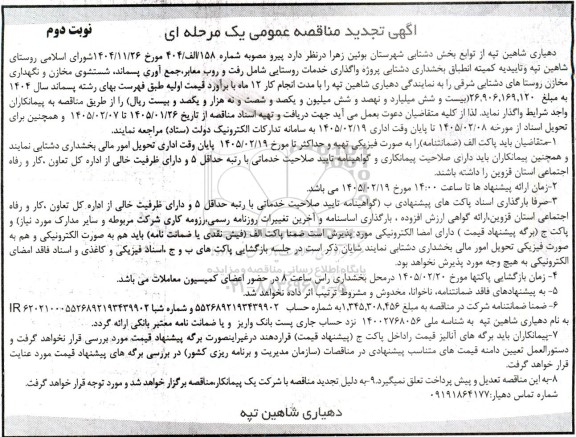 آگهی تجدید مناقصه عمومی یک مرحله ای
نوبت دوم
دهیاری شاهین تپه از توابع بخش دشتابی شهرستان بوئین زهرا درنظر دارد پیرو مصوبه شماره ۱۵۸/الف/۴۰۴ مورخ ۱۴۰۴/۱۱/۲۶شورای اسلامی روستای
شاهین تپه وتاییدیه کمیته انطباق بخشداری دشتابی پروژه واگذاری خدمات روستایی شامل رفت و روب معابر،جمع آوری پسماند، شستشوی مخازن و نگهداری
مخازن روستا های دشتابی شرقی را به نمایندگی دهیاری شاهین تپه را با مدت انجام کار ۱۲ ماه با برآورد قیمت اولیه طبق فهرست بهای رشته پسماند سال ۱۴۰۴
به مبلغ ۲۶،۹۰۶،۱۶۹،۱۲۰(بیست و شش میلیارد و نهصد و شش میلیون و یکصد و شصت و نه هزار و یکصد و بیست ریال) را از طریق مناقصه به پیمانکاران
واجد شرایط واگذار نماید. لذا از کلیه متقاضیان دعوت بعمل می آید جهت دریافت و تهیه اسناد مناقصه از تاریخ ۱۴۰۵/۰۱/۲۶ تا ۱۴۰۵/۰۲/۰۷ و همچنین برای
تحویل اسناد از مورخه ۱۴۰۵/۰۲/۰۸ تا پایان وقت اداری ۱۴۰۵/۰۲/۱۹ به سامانه تدارکات الکترونیک دولت (ستاد) مراجعه نمایند.
۱-متقاضیان باید پاکت الف (ضمانتنامه)را به صورت فیزیکی تهیه و حداکثر تا مورخ ۱۴۰۵/۰۲/۱۹ پایان وقت اداری تحویل امور مالی بخشداری دشتابی نمایند
و همچنین پیمانکاران باید دارای صلاحیت پیمانکاری و گواهینامه تایید صلاحیت خدماتی با رتبه حداقل ۵ و دارای ظرفیت خالی از اداره کل تعاون ،کار و رفاه
اجتماعی استان قزوین را داشته باشند.
۲-زمان ارائه پیشنهاد ها تا ساعت ۱۴:۰۰ مورخ ۱۴۰۵/۰۲/۱۹ می باشد.
۳-صرفا بارگذاری اسناد پاکت های پیشنهادی ب (گواهینامه تایید صلاحیت خدماتی با رتبه حداقل ۵ و دارای ظرفیت خالی از اداره کل تعاون ،کار و رفاه
اجتماعی استان قزوین،ارائه گواهی ارزش افزوده ، بارگذاری اساسنامه و آخرین تغییرات روزنامه رسمی،رزومه کاری شرکت مربوطه و سایر مدارک مورد نیاز) و
پاکت ج (برگه پیشنهاد قیمت ) دارای امضا الکترونیکی مورد پذیرش است ضمنا پاکت الف (فیش نقدی یا ضمانت نامه) باید هم به صورت الکترونیکی و هم به
صورت فیزیکی تحویل امور مالی بخشداری دشتابی نمایند شایان ذکر است در جلسه بازگشایی پاکت های ب و ج ،اسناد فیزیکی و کاغذی و اسناد فاقد امضای
الکترونیکی به هیچ وجه مورد پذیرش نخواهد بود.
۴- زمان بازگشایی پاکتها مورخ ۱۴۰۵/۰۲/۲۰ درمحل بخشداری راس ساعت ۸ در حضور اعضای کمیسیون معاملات می باشد.
۵- به پیشنهادهای فاقد ضمانتنامه، ناخوانا، مخدوش و مشروط ترتیب اثر داده نخواهد شد.
۶- ضمنا ضمانتنامه شرکت در مناقصه به مبلغ ۱،۳۴۵،۳۰۸،۴۵۶به شماره حساب ۵۵۲۶۸۹۲۱۹۳۴۳۹۹۰۲ و شماره شبا IR ۶۲۰۲۱۰۰۰۰۵۵۲۶۸۹۲۱۹۳۴۳۹۹۰۲
به نام دهیاری شاهین تپه به شناسه ملی ۱۴۰۰۲۷۶۸۰۵۶ نزد حساب جاری پست بانک واریز و یا ضمانت نامه معتبر بانکی ارائه گردد.
۷-پیمانکاران باید برگه های آنالیز قیمت راداخل پاکت ج (پیشنهاد قیمت) قراردهند درغیراینصورت برگه پیشنهاد قیمت مورد بررسی قرار نخواهد گرفت و
دستورالعمل تعیین دامنه قیمت های متناسب پیشنهادی در مناقصات (سازمان مدیریت و برنامه ریزی کشور) در بررسی برگه های پیشنهاد قیمت مورد عنایت
قرار خواهد گرفت.
۸-به این مناقصه تعدیل و پیش پرداخت تعلق نمیگیرد.۹-به دلیل تجدید مناقصه با شرکت یک پیمانکار،مناقصه برگزار خواهد شد و مورد توجه قرار خواهد گرفت.
شماره تماس دهیار:۰۹۱۹۱۸۶۴۱۷۷
دهیاری شاهین تپه